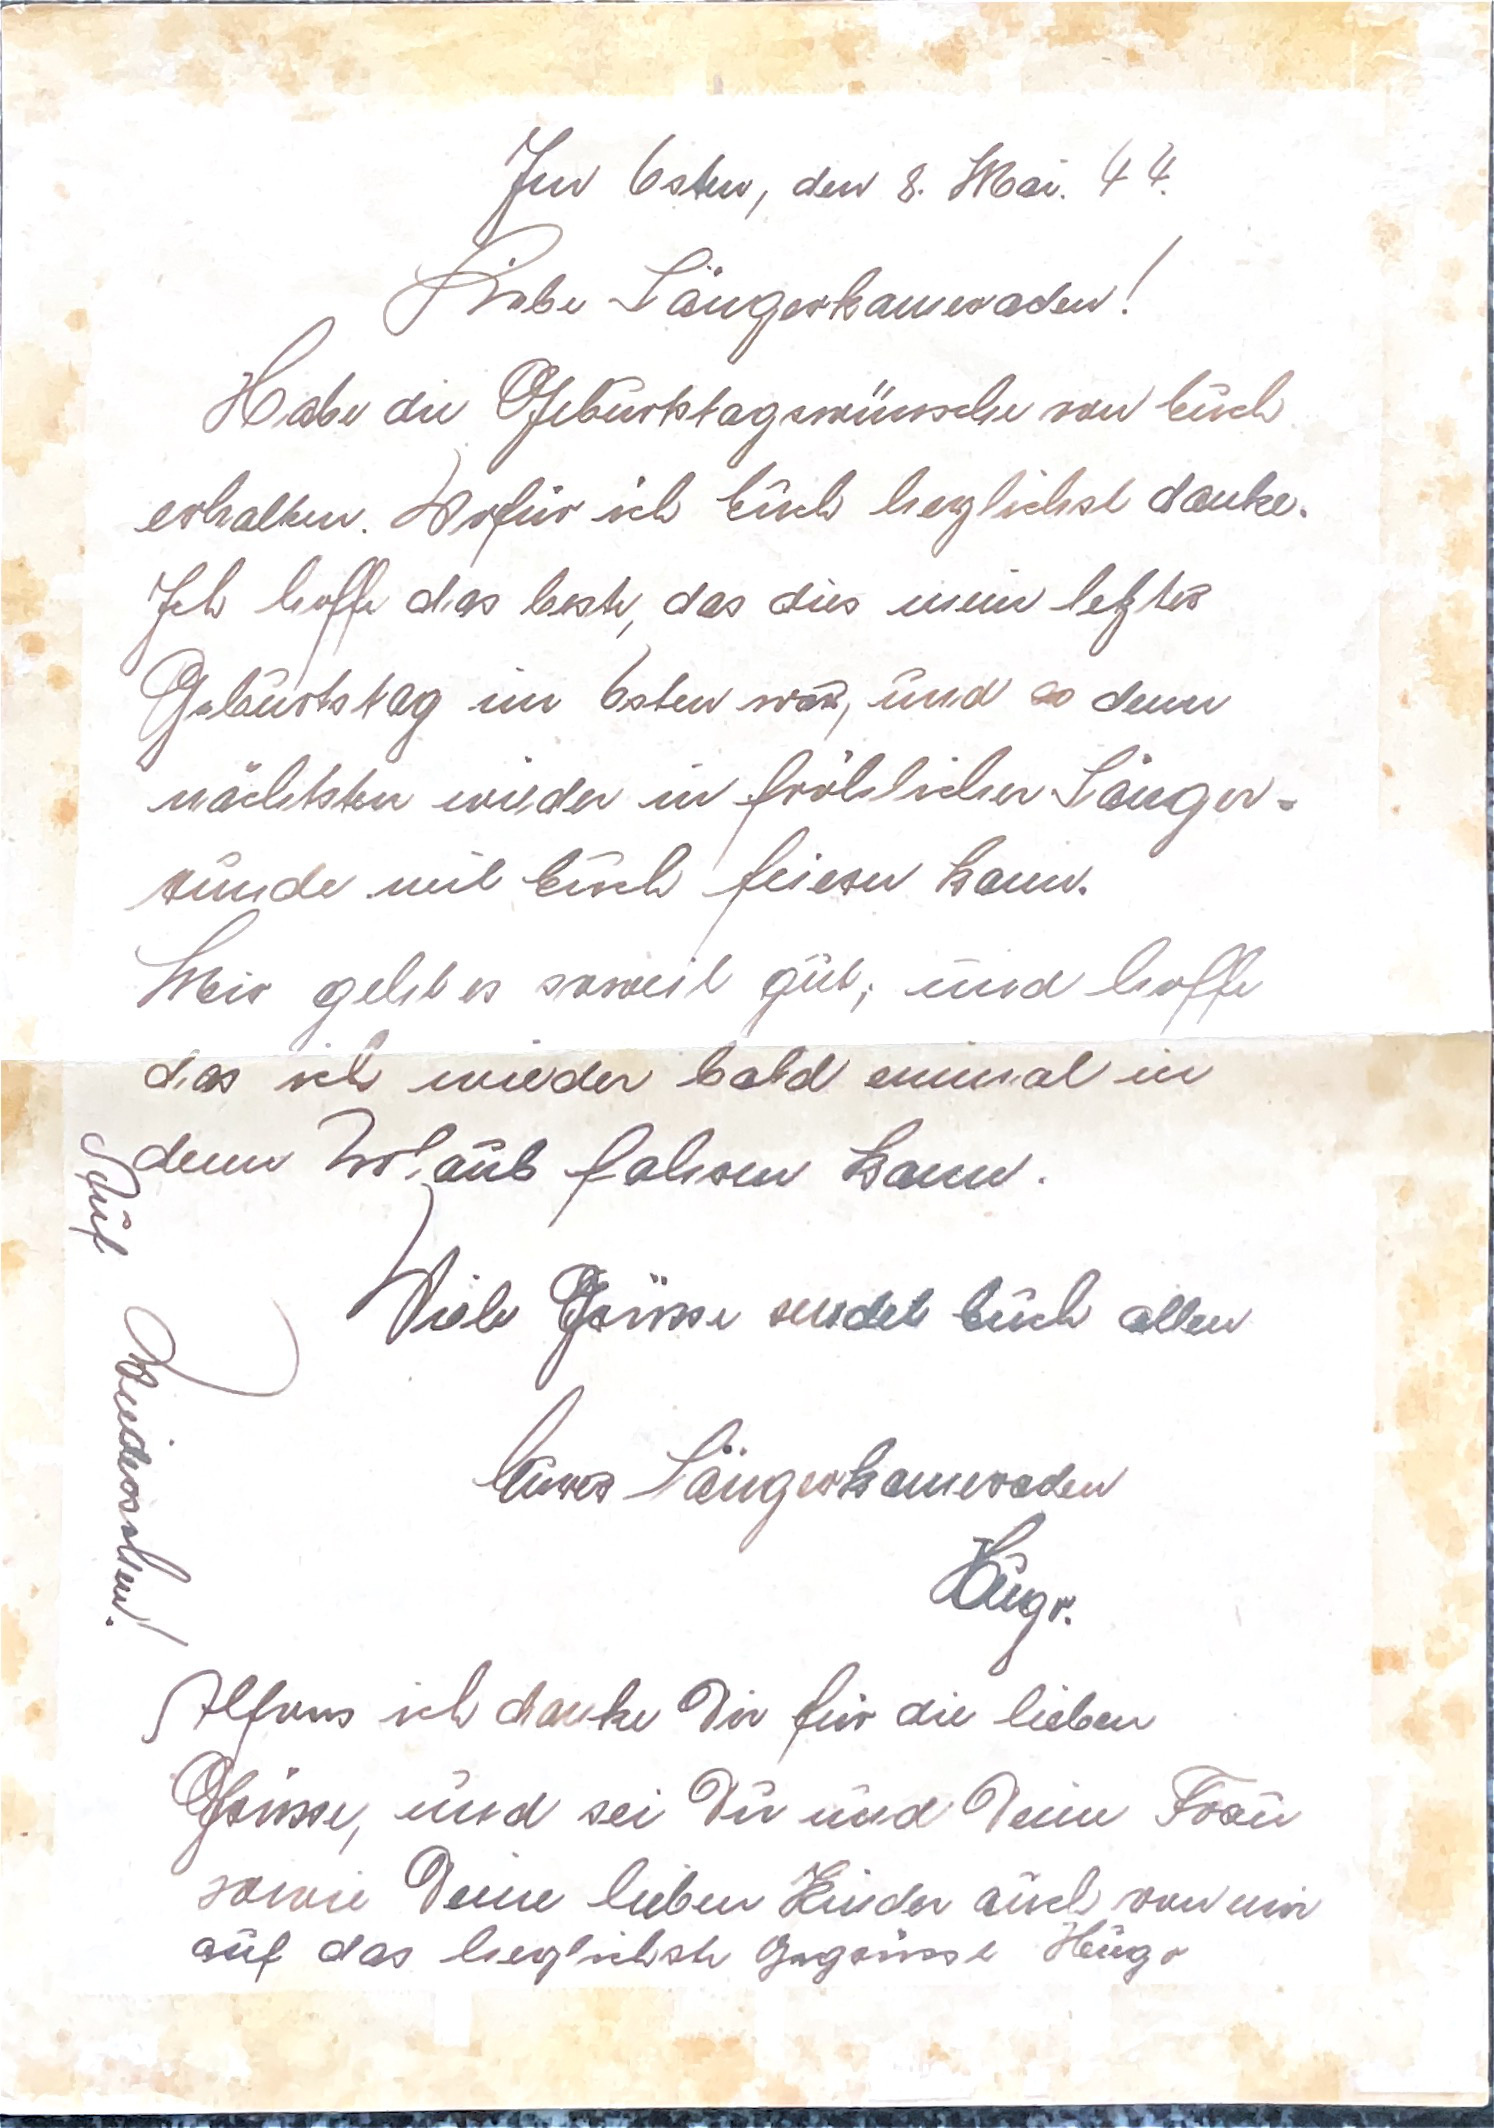 Im Osten, den 8. Mai. 44.
Liebe Sängerkameraden!
Habe die Geburtstagswünsche von Euch
erhalten. Wofür ich Euch herzlichst danke.
Ich hoffe das beste, das dies mein letzter
Geburtstag im Osten war, und so denn
nächtsten wieder in fröhlicher Sänger-
runde mit Euch feiern kann.
Mir geht es soweit gut, und hoffe
das ich wieder bald einmal in
denn Urlaub fahren kann.
Viele Grüsse sendet Euch allen
Eurer Sängerkameraden
Hugo.
Auf Wiedersehen!
Alfons ich danke Dir für die lieben
Grüsse, und sei Du und Deine Frau
sowie Deine lieben Kinder auch von mir
auf das herzlichste gegrüsst Hugo